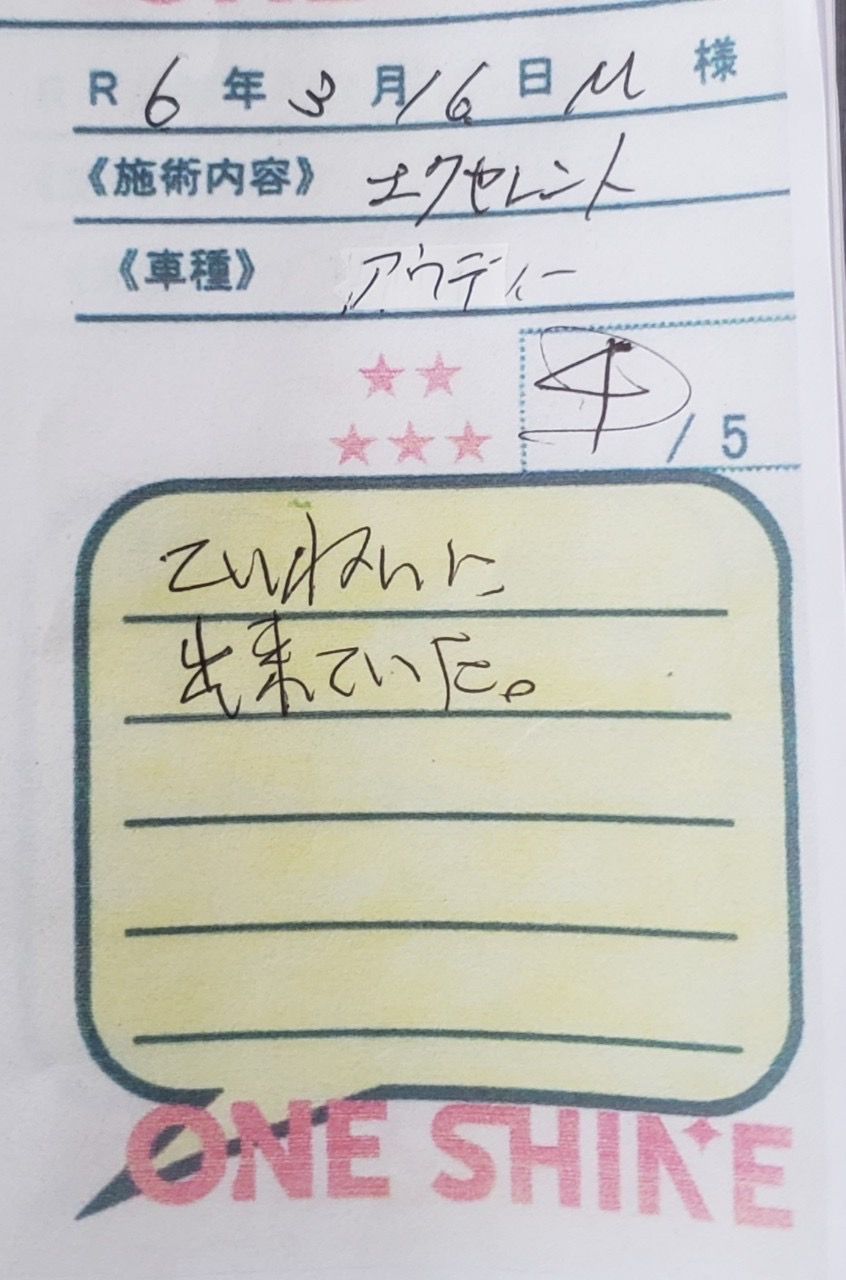 R 6 年 3 月 16 日 M 様
《施術内容》 エクセレント
《車種》 アウディー
/ 5
ていねいに
出来ていた。
ONE SHINE